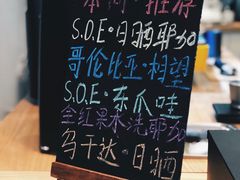 本周·推荐
S.O.E·日晒耶加
哥伦比亚·相望
S.O.E·东爪哇
全红果水洗耶加
乌干达·日晒